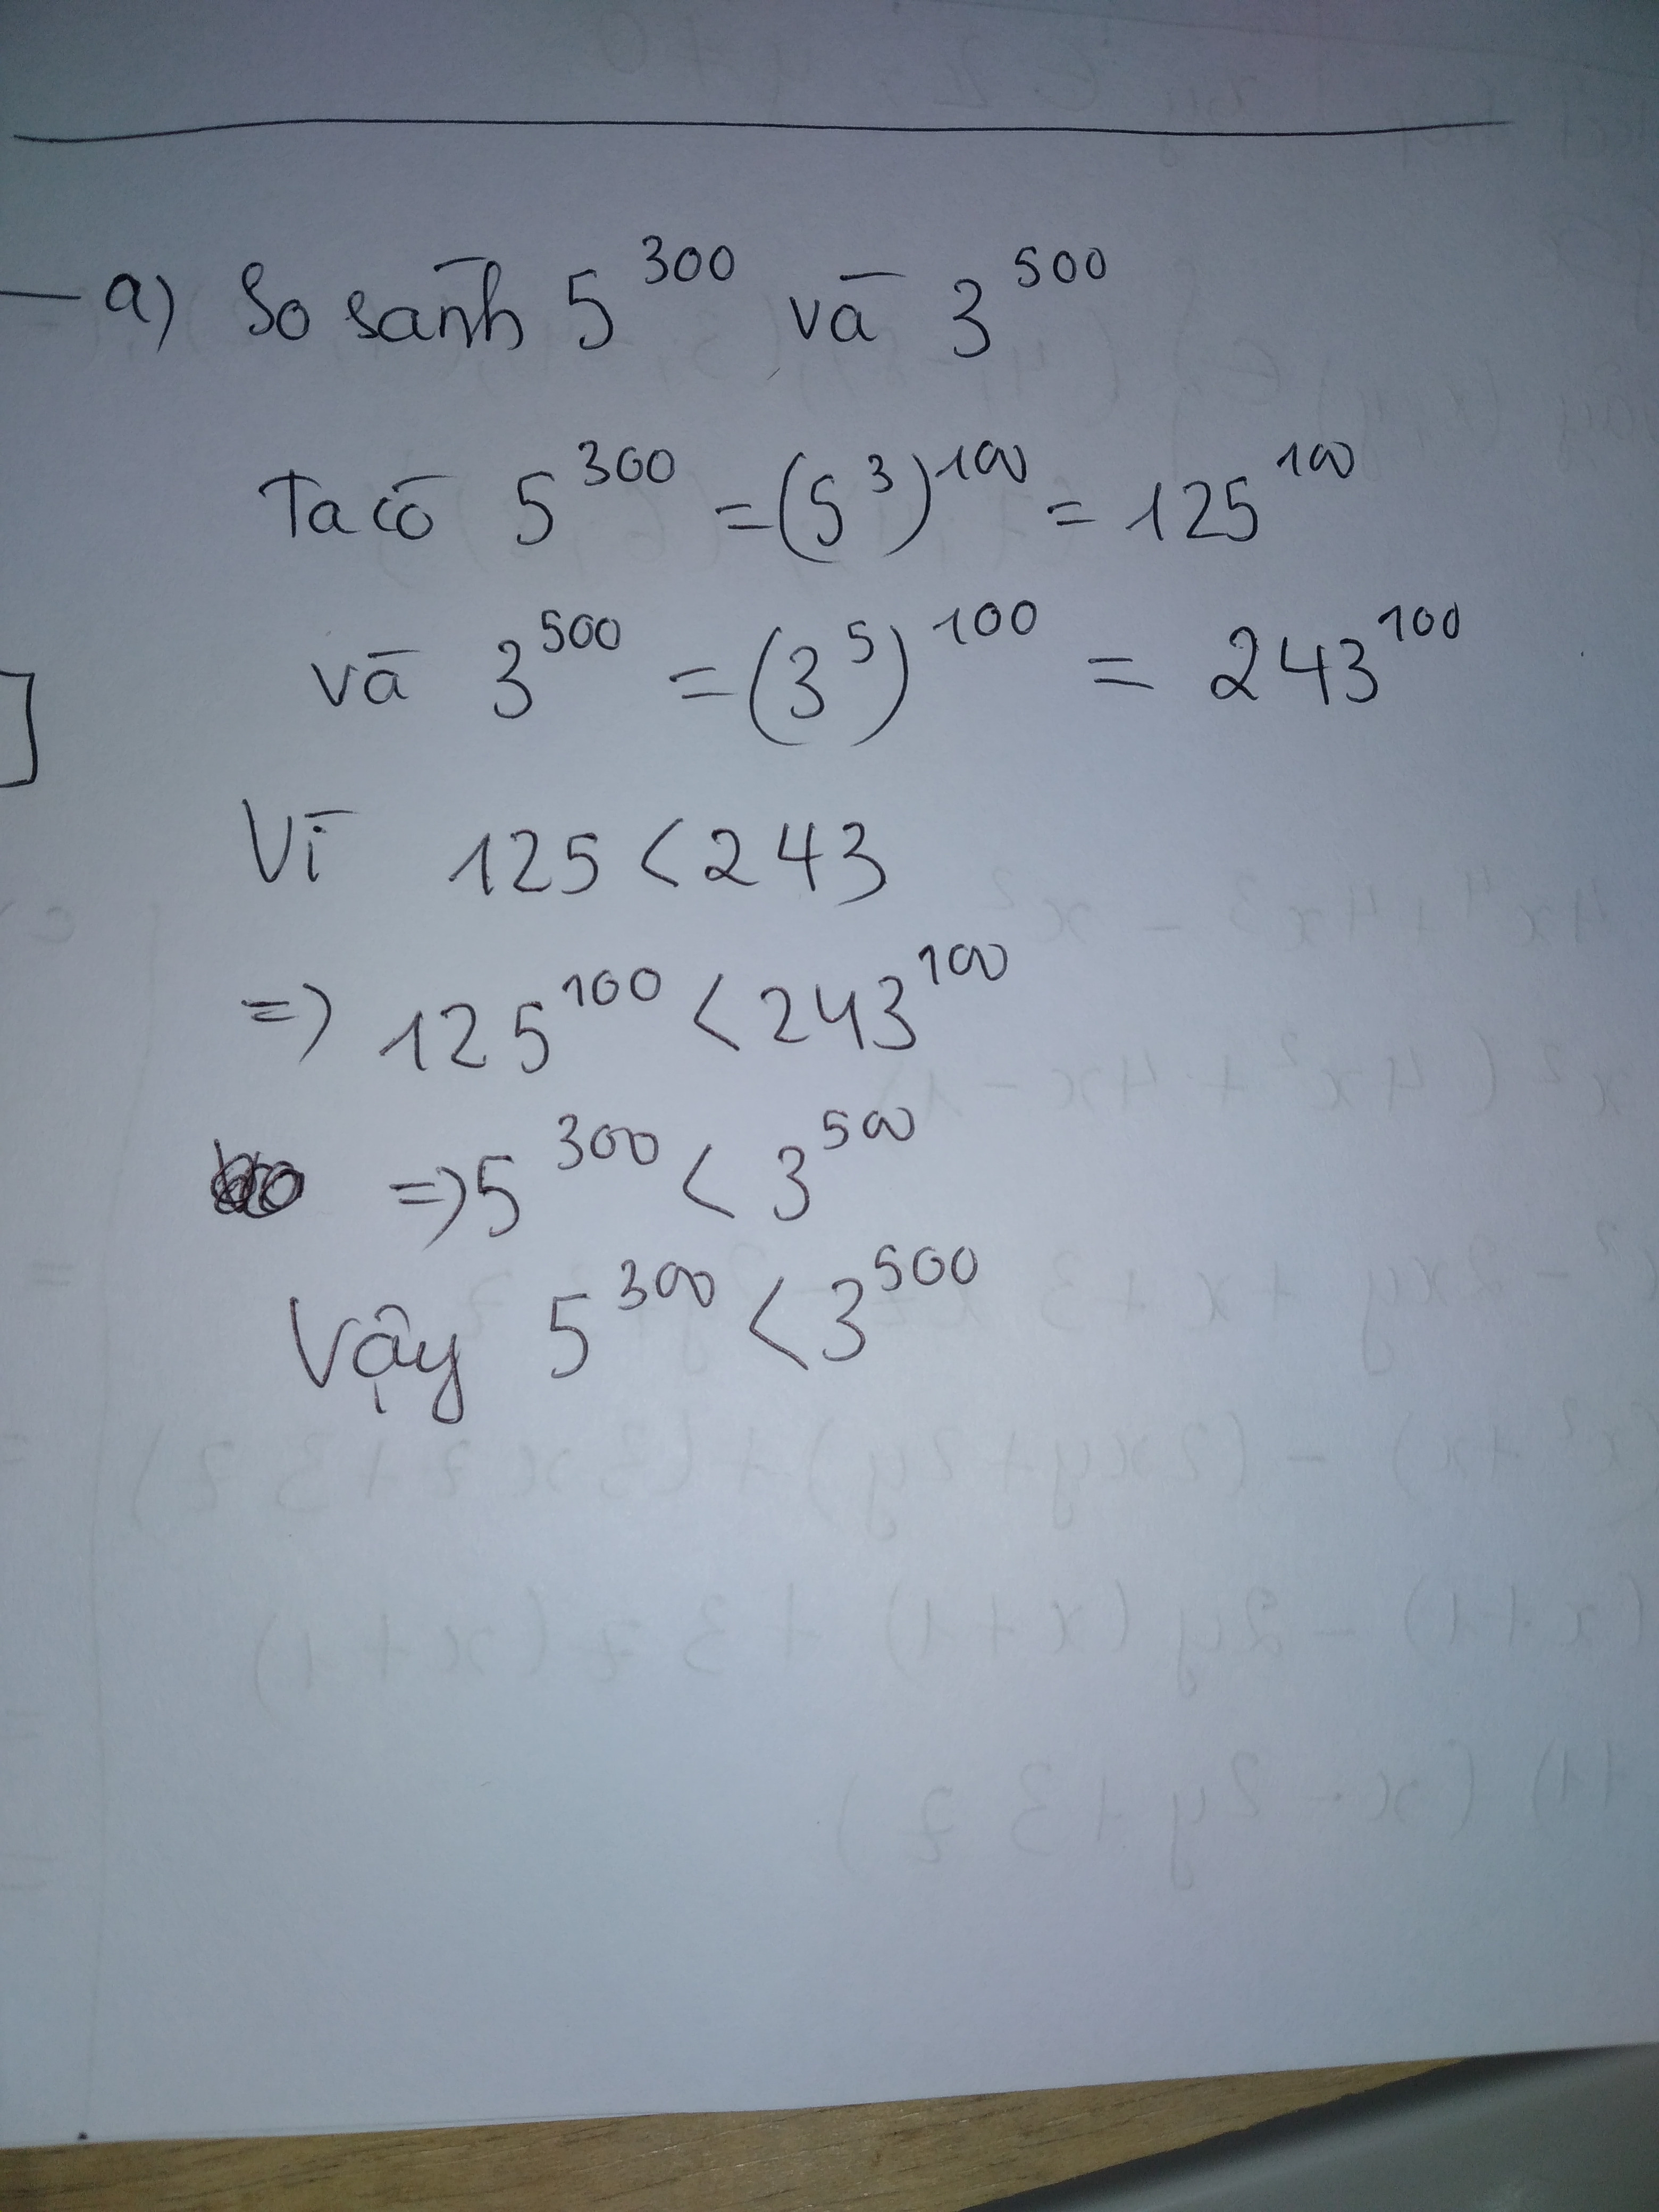 a) So sánh 5^300 và 3^500
Ta có 5^300 = (5^3)^100 = 125^100
và 3^500 = (3^5)^100 = 243^100
Vì 125 < 243
=> 125^100 < 243^100
=> 5^300 < 3^500
Vậy 5^300 < 3^500